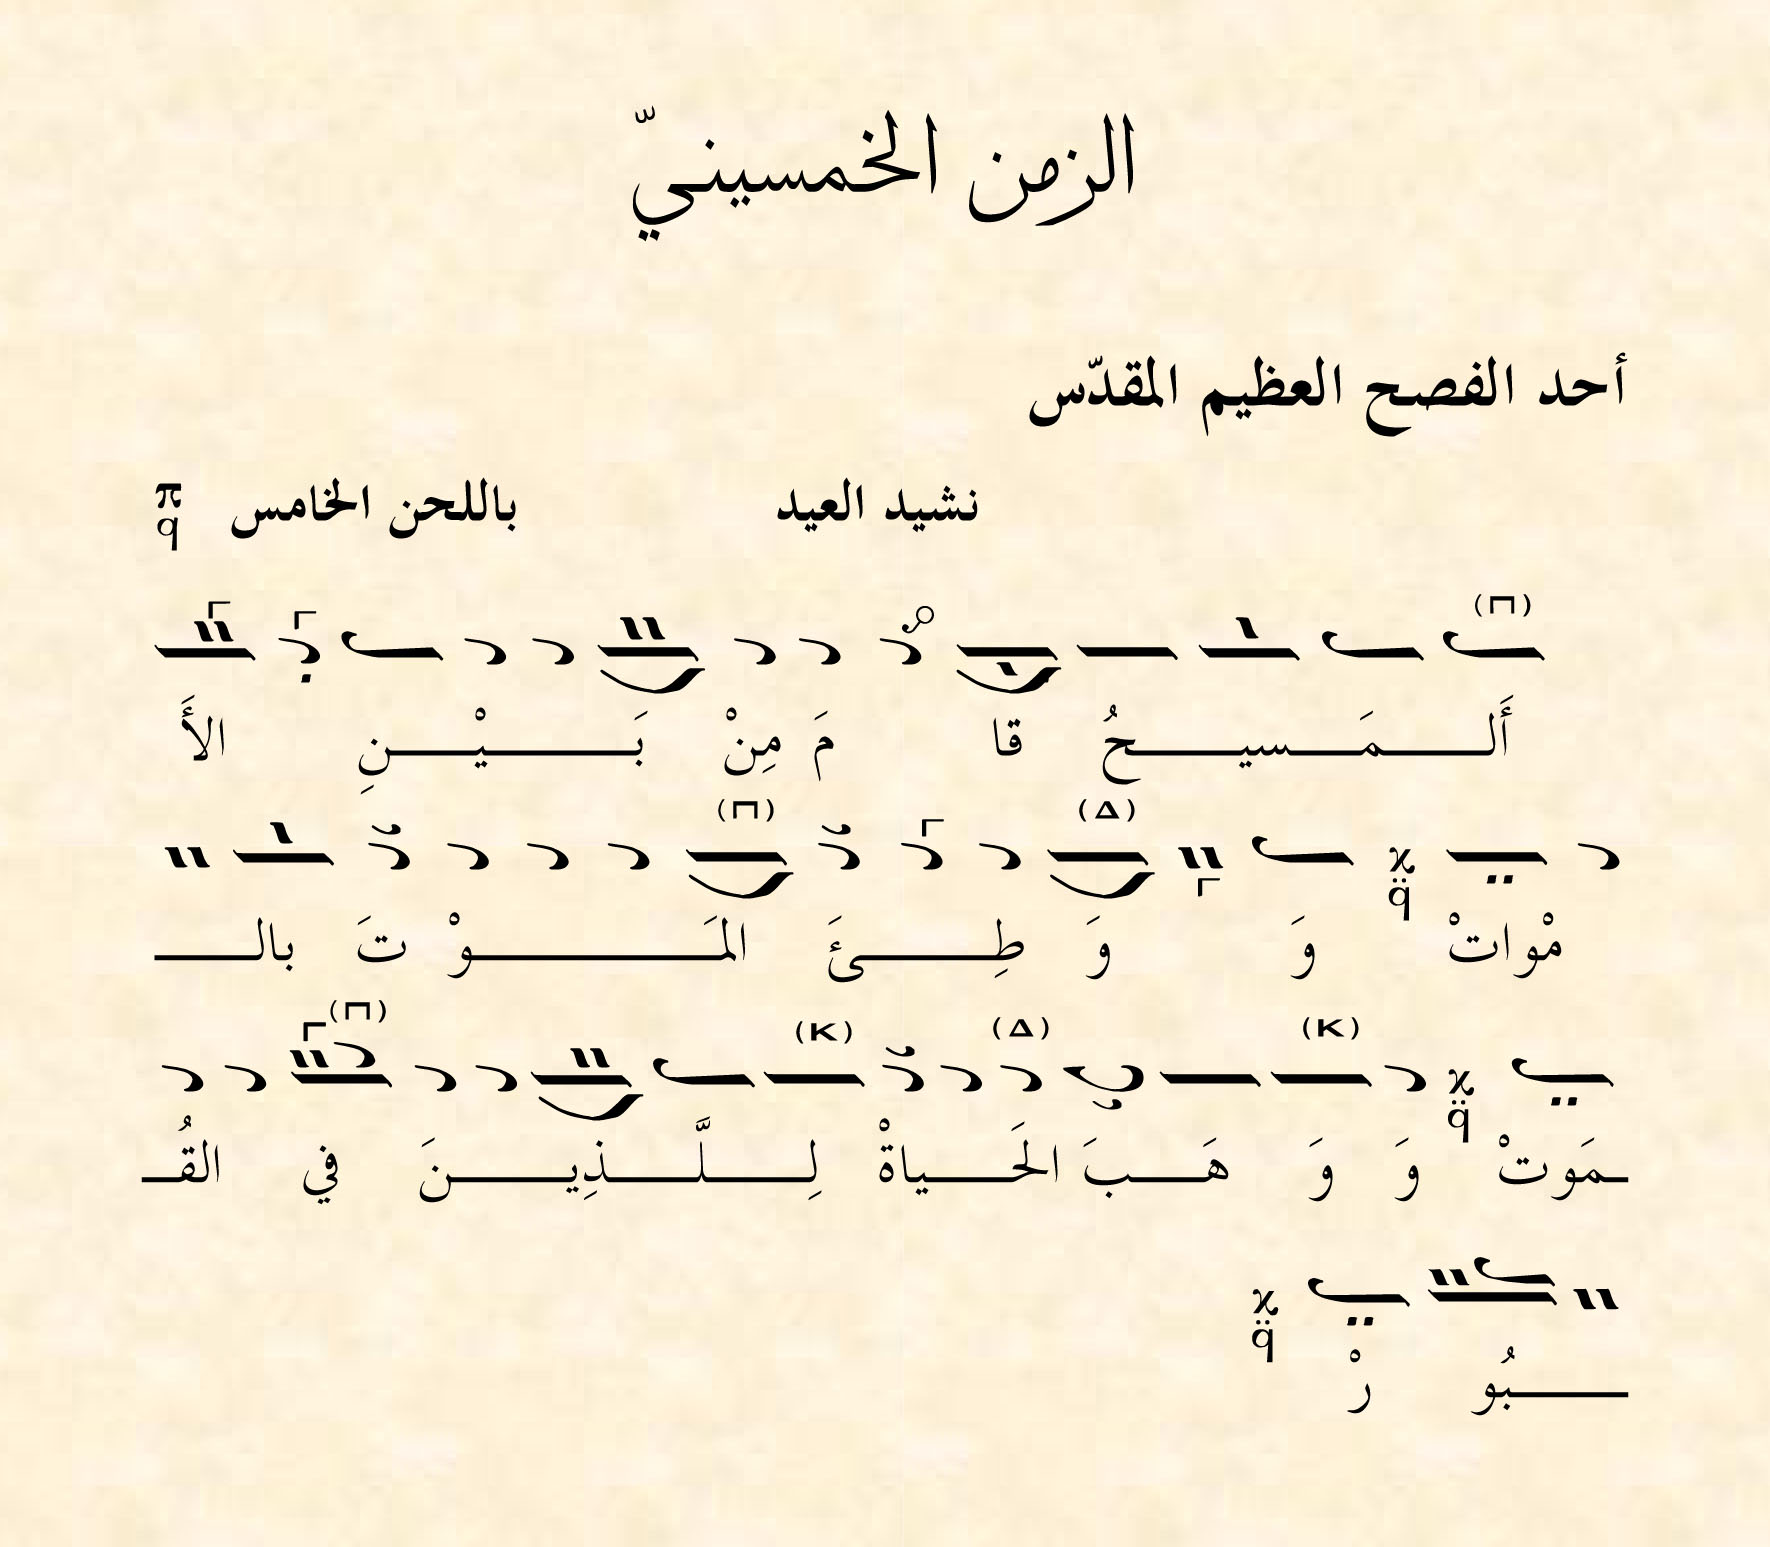 الزمن الخمسينيّ
أحد الفصح العظيم المقدّس
نشيد العيد باللحن الخامس π q
(Π)
أَلـــمَـــسيـــحُ قا مَ مِنْ بَـــيْـــنِ الأَ
(Δ) (Π)
مْواتْ وَ وَ طِـــئَ المَـــوْ تَ بالـــ
(K) (Δ) (K) (Π)
ـمَوتْ وَ وَ هَـــبَ الحَـــياةْ لِـــلَّـــذِيـــنَ في القُـ
ـــبُو رْ